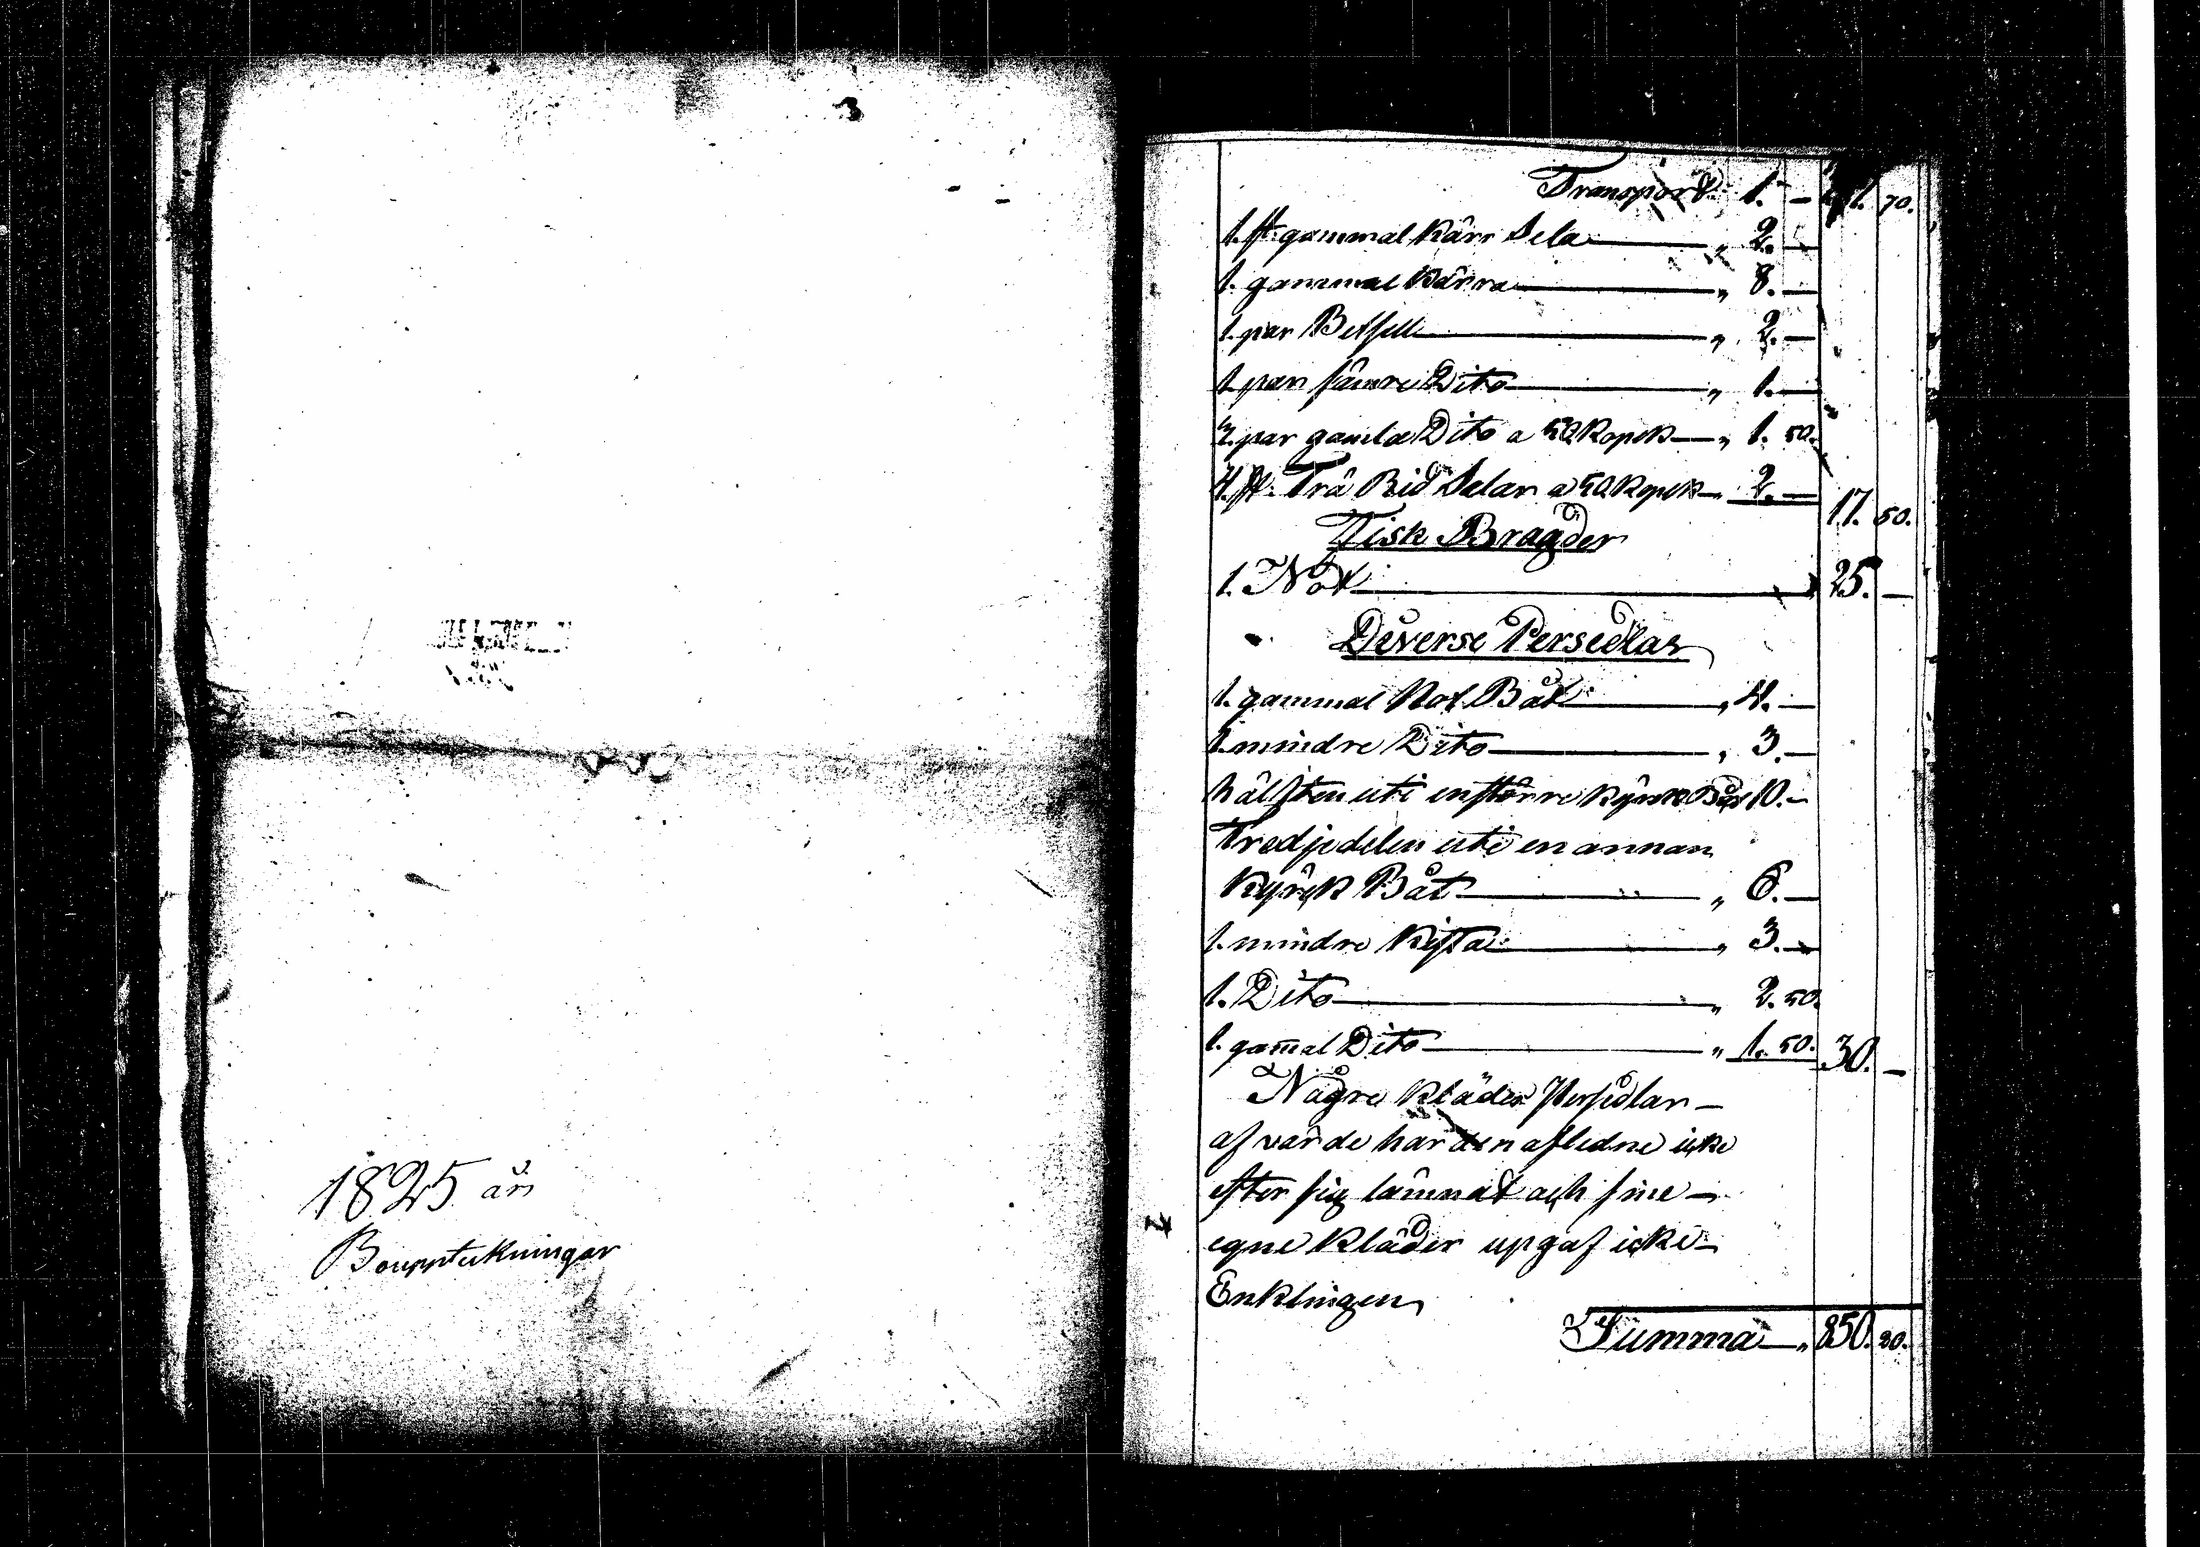 3
1825 års
Bouppteckningar
Transport 1. — 70.
1. st: gammal Kärr Sela — „ 2. —
1. gammal Kärra — „ 8. —
1. par Betsell — „ 2. —
1. par sämre Dito — „ 1. —
3. par gamla Dito a 50 Kopek — „ 1. 50.
4. st: Trä Rid Selar a 50 Kopek — „ 2. — 17. 50.
Fisk Bragder
1. Not — 25. —
Diverse Persedlar
1. gammal Not Båt — „ 4. —
1. mindre Dito — „ 3. —
hälften uti en större Kyrck Båt 10. —
Tredjedelen uti en annan
Kyrck Båt — „ 6. —
1. mindre Kista — „ 3. —
1. Dito — „ 2. 50.
1. gam̄al Dito — „ 1. 50. 30. —
Några Kläder Persedlar —
af värde har den afledne icke
efter sig lämnat och sine —
egne Kläder upgaf icke —
Enklingen
Summa — „ 850. 20.